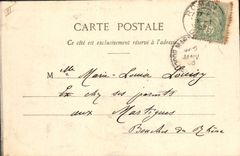 CARTE POSTALE
Ce côté est exclusivement réservé à l'adresse
Mlle Marie-Louise
Ex chez ses parents
aux Martigues
Bouches du Rhône